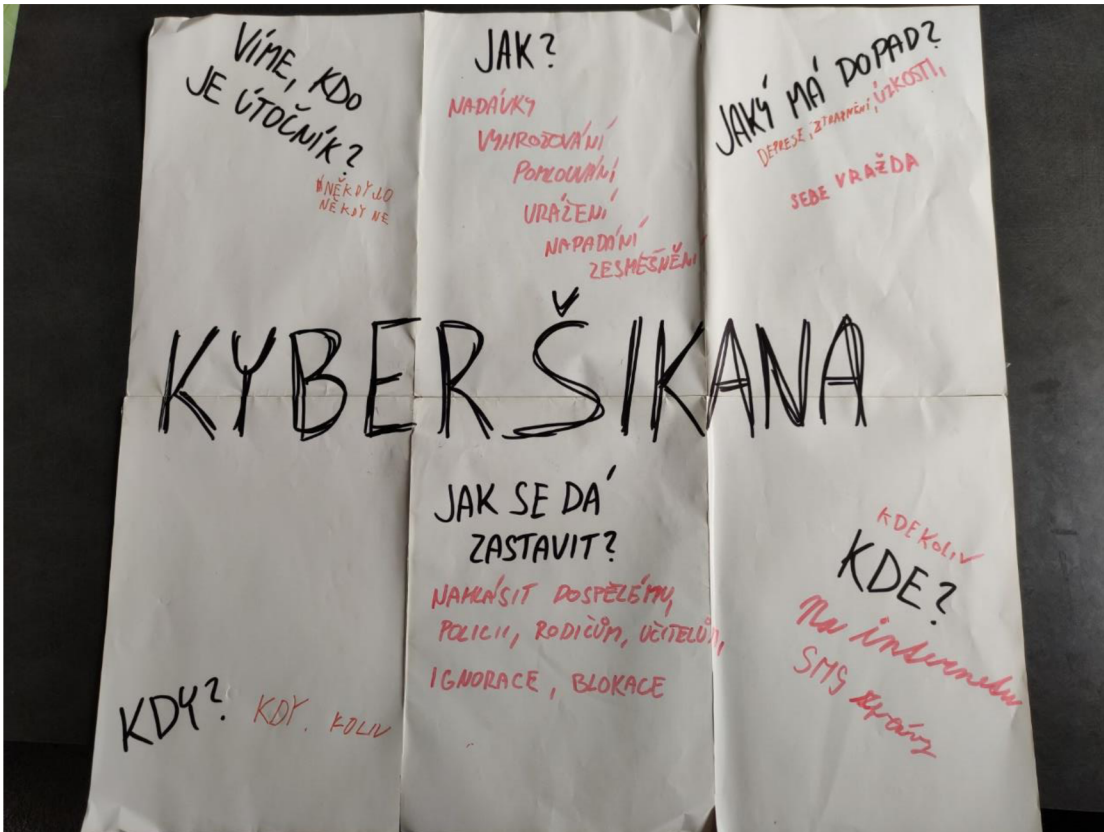 VÍME, KDO
JE ÚTOČNÍK?
NĚKDY JO
NĚKDY NE
JAK?
NADÁVKY
VYHROŽOVÁNÍ
POMLOUVÁNÍ
URÁŽENÍ
NAPADÁNÍ
ZESMĚŠNĚNÍ
JAKÝ MÁ DOPAD?
DEPRESE, ZTRAPNĚNÍ, ÚZKOSTI,
SEBE VRAŽDA
KYBERŠIKANA
KDY? KDY. KOLIV
JAK SE DÁ
ZASTAVIT?
NAHLÁSIT DOSPĚLÉMU,
POLICII, RODIČŮM, UČITELŮM,
IGNORACE, BLOKACE
KDEKOLIV
KDE?
Na internetu
SMS zprávy